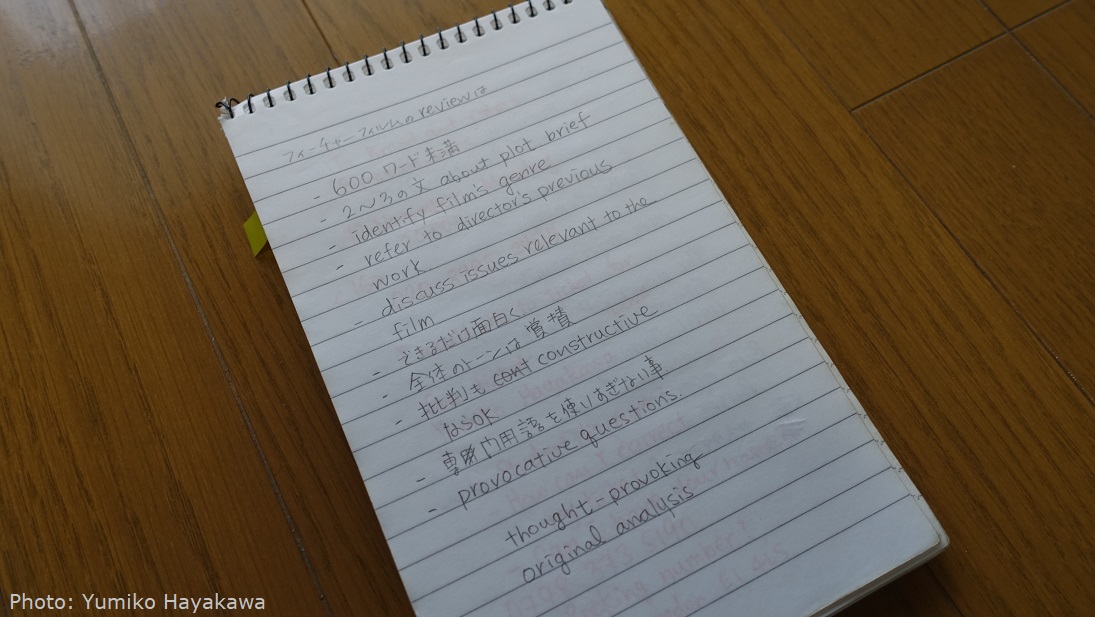 フィーチャーフィルムのreviewは
- 600 ワード未満
- 2～3の文 about plot brief
- identify film's genre
- refer to director's previous
work
- discuss issues relevant to the
film
- できるだけ面白く
- 全体のトーンは賞賛
- 批判も cont constructive
ならOK
- 専門用語を使いすぎない事
- provocative questions.
thought-provoking
original analysis
Photo: Yumiko Hayakawa